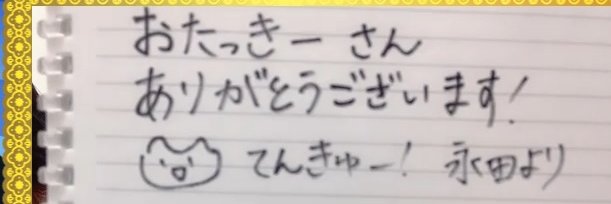 おたっきー さん
ありがとうございます!
てんきゅー! 永田より